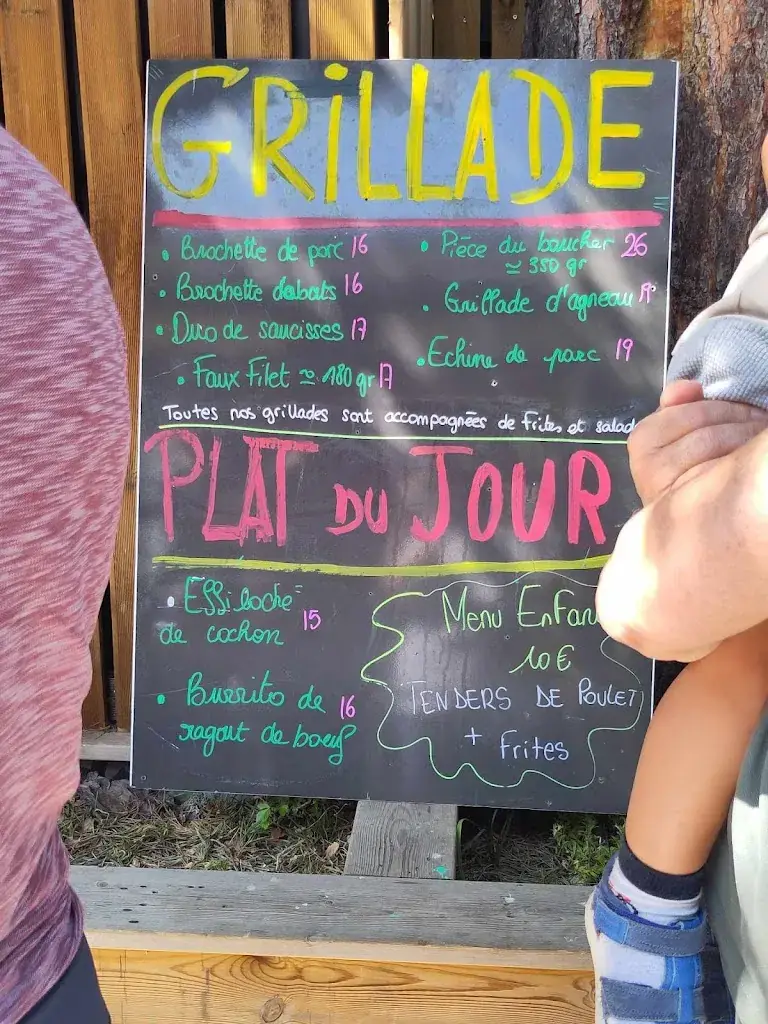 GRILLADE
• Brochette de porc 16
• Brochette d'abats 16
• Duo de saucisses 17
• Faux Filet ≃ 180 gr 17
• Pièce du boucher 26
≃ 350 gr
• Grillade d'agneau
• Echine de porc 19
Toutes nos grillades sont accompagnées de frites et salad
PLAT DU JOUR
• Effiloché
de cochon 15
• Burrito de
ragout de boeuf 16
Menu Enfan
10€
TENDERS DE POULET
+ Frites